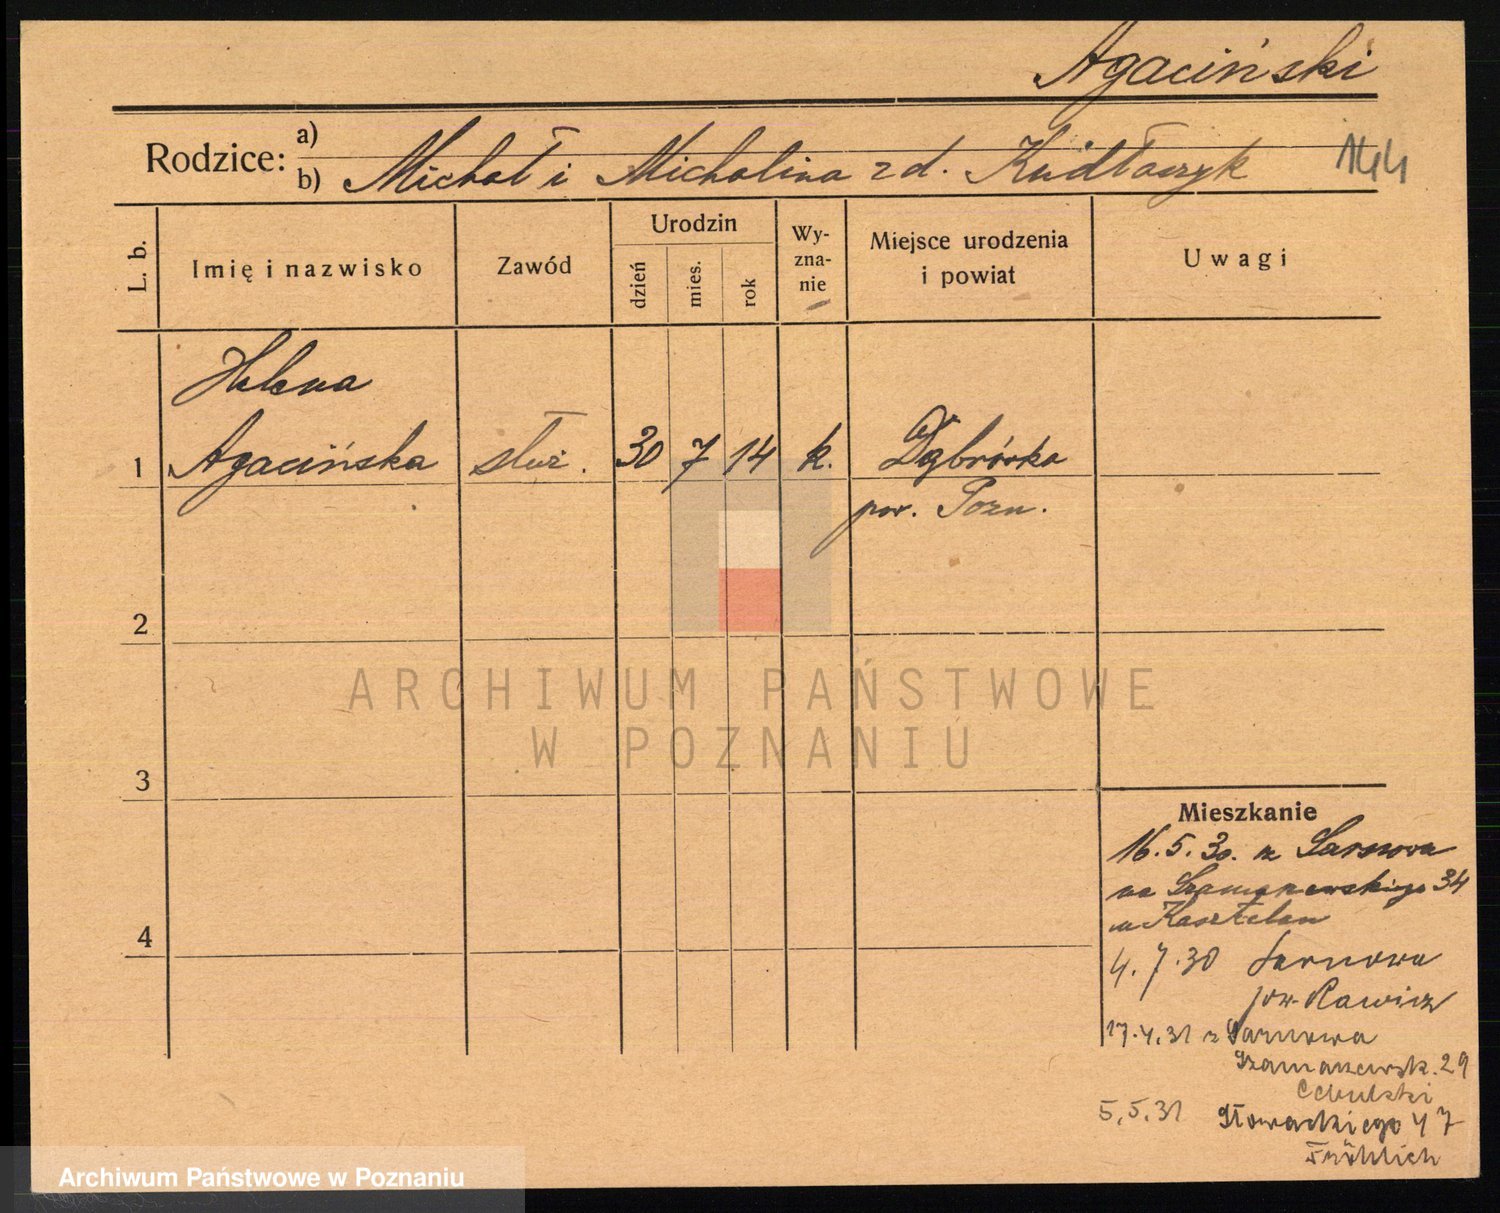 Agaciński
Rodzice: a)
b) Michał i Michalina z d. Kudłaszyk
144
L. b.
Imię i nazwisko
Zawód
Urodzin
dzień
mies.
rok
Wy-
zna-
nie
Miejsce urodzenia
i powiat
Uwagi
Helena
1 Agacińska służ. 30 7 14 k. Dąbrówka
pow. Pozn.
2
3
4
Mieszkanie
16.5.30. z Sarnowa
na Szamarzewskiego 34
u Kasztelan
4.7.30 Sarnowa
pow. Rawicz
17.4.31 z Sarnowa
Szamarzewsk. 29
Cebulski
5.5.31 Słowackiego 47
Fröhlich
ARCHIWUM PAŃSTWOWE
W POZNANIU
Archiwum Państwowe w Poznaniu